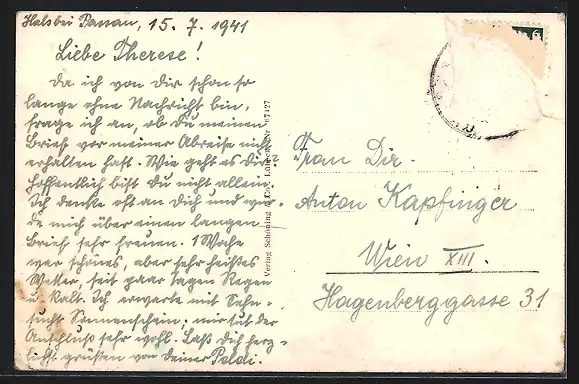 Hals bei Passau, 15. 7. 1941
Liebe Therese!
Da ich von Dir schon so
lange ohne Nachricht bin,
frage ich an, ob Du meinen
Brief vor meiner Abreise nicht
erhalten hast. Wie geht es Dir?
Hoffentlich bist Du nicht allein.
Ich denke oft an Dich und wür-
de mich über einen langen
Brief sehr freuen. 1 Woche
war schönes, aber sehr heißes
Wetter, seit paar Tagen Regen
u. kalt. Ich erwarte mit Sehn-
sucht Sonnenschein, mir tut der
Anschluß sehr wohl. Laß Dich herz-
lichst grüßen von deiner Poldi.
Verlag Schöning & Co., Lübeck
Frau Dir.
Anton Kapfinger
Wien XIII.
Hagenberggasse 31